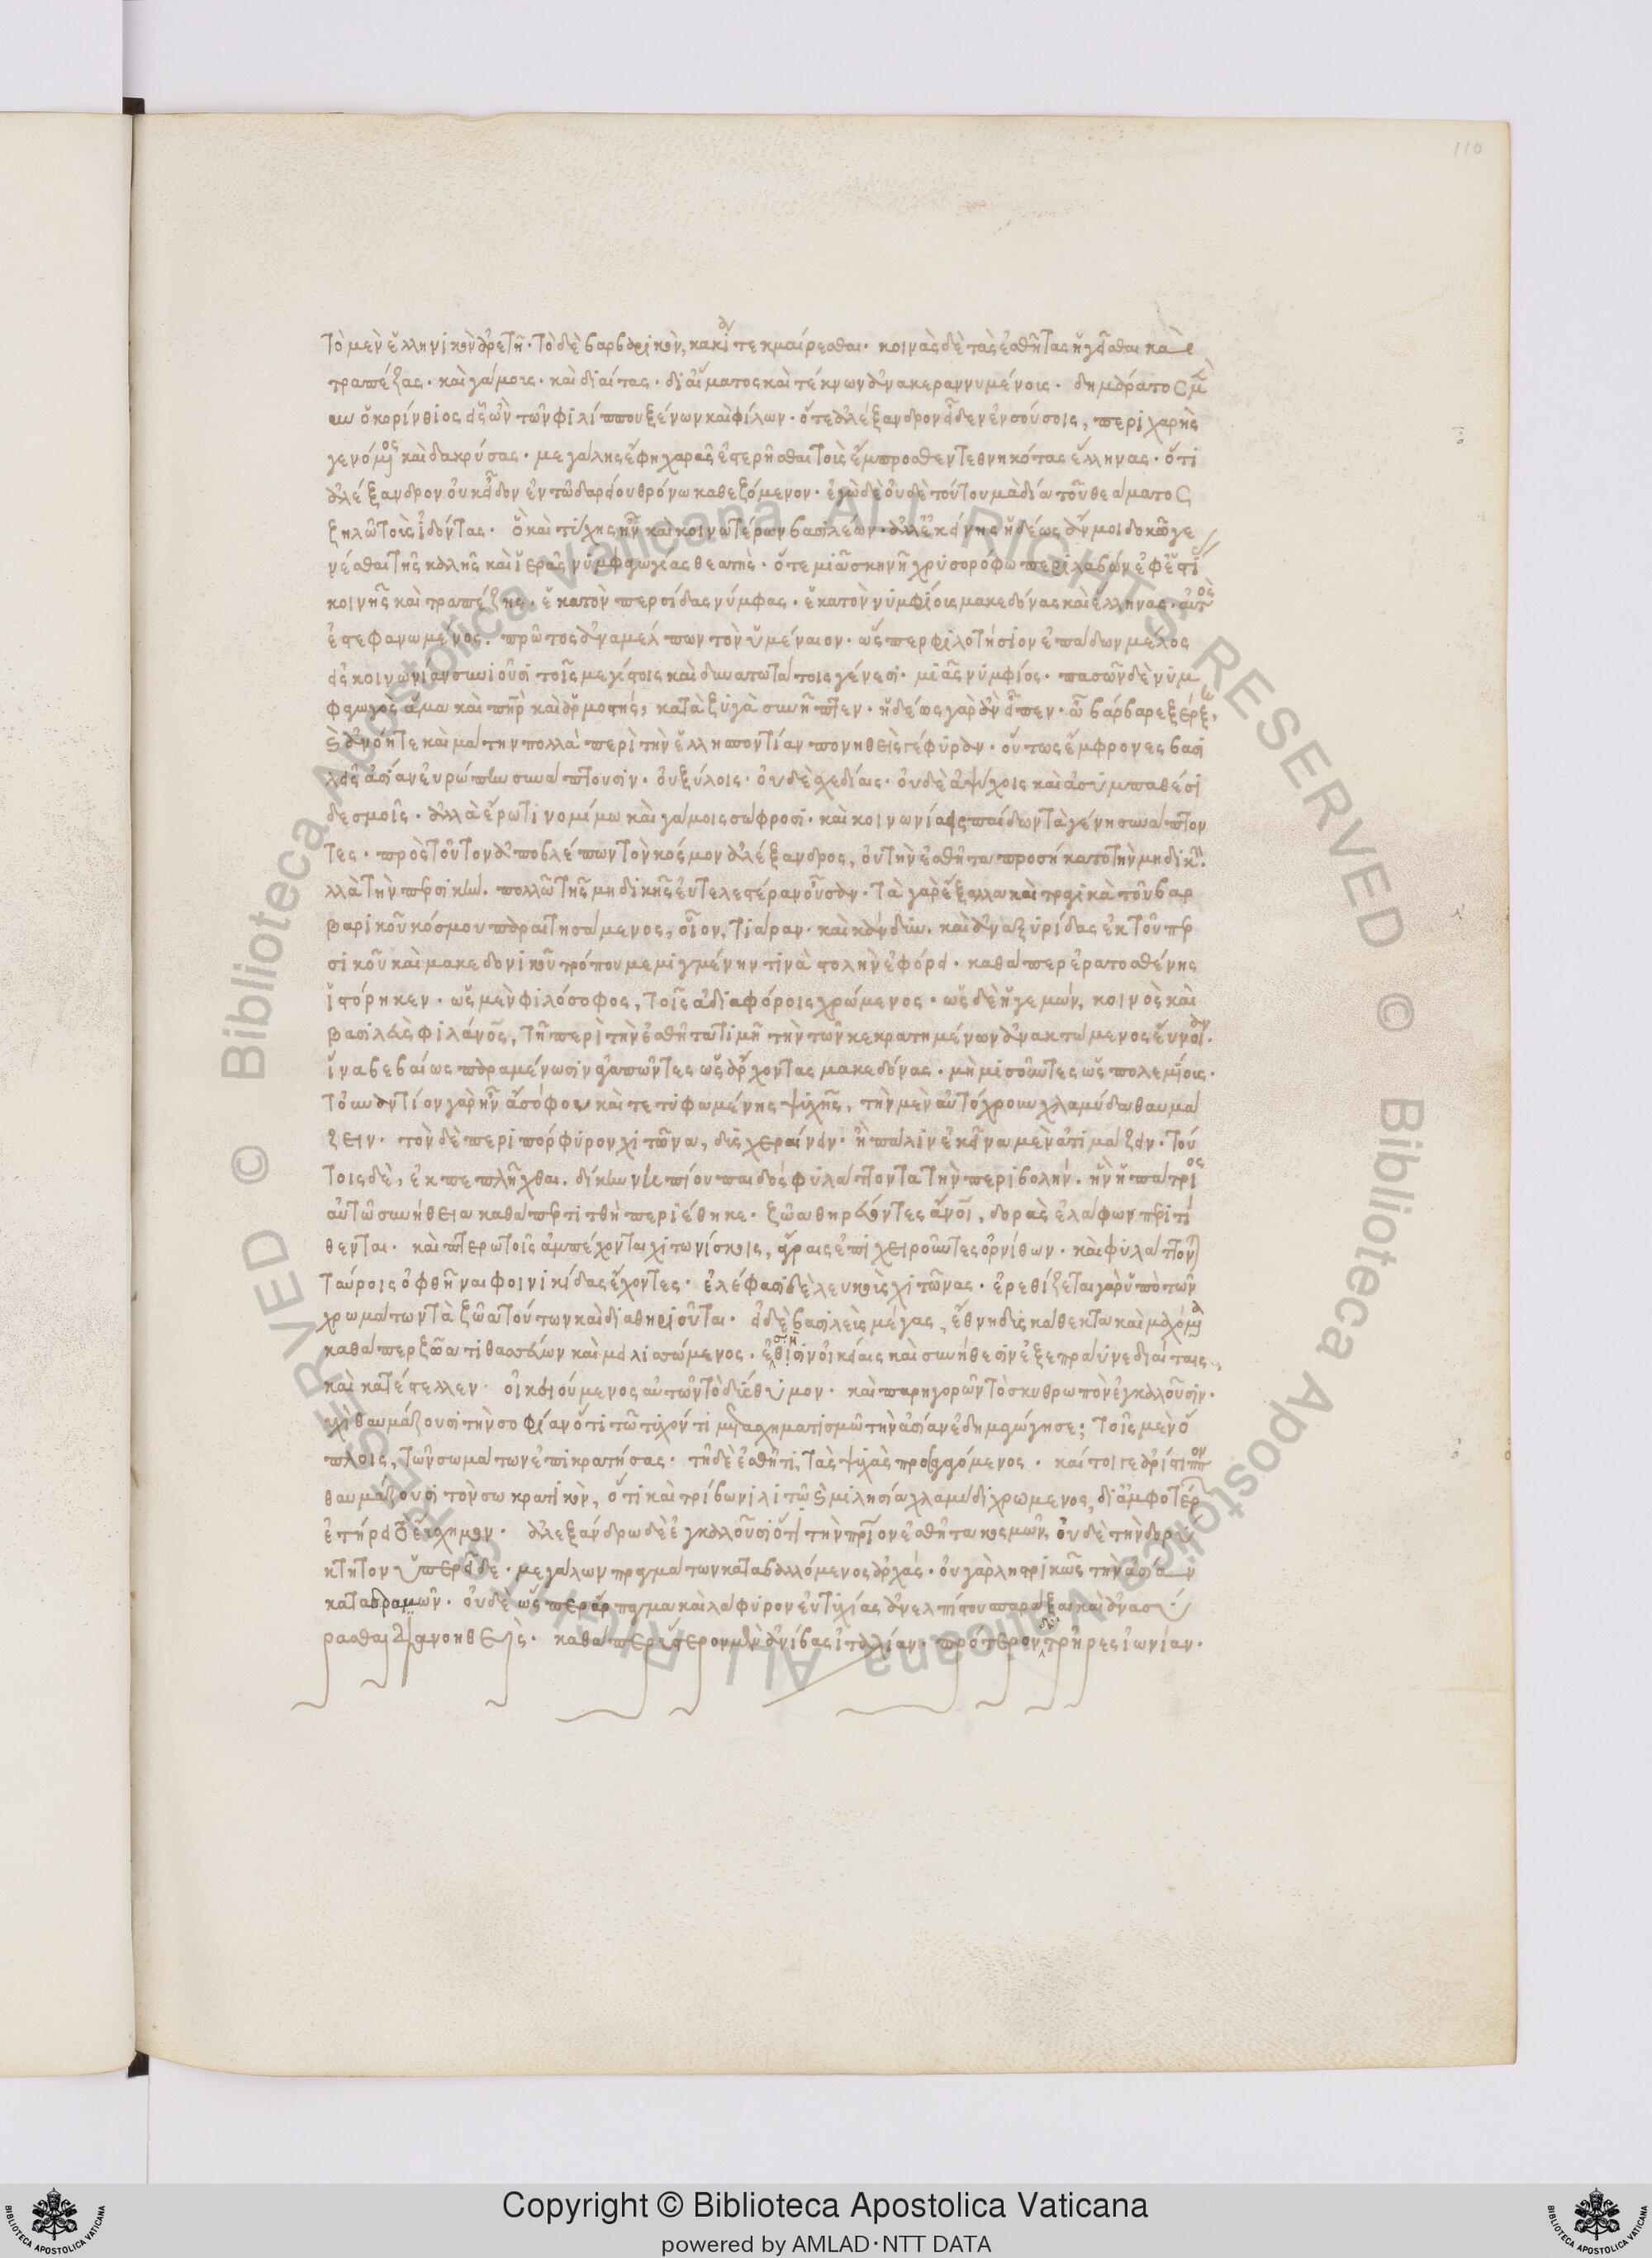 110
τὸ μὲν ἑλληνικὸν ἀρετῇ· τὸ δὲ βαρβαρικὸν, κακίαν τεκμαίρεσθαι· κοινὰς δὲ τὰς ἐσθῆτας ἡγεῖσθαι καὶ
τραπέζας· καὶ γάμους· καὶ διαίτας· δι' αἵματος καὶ τέκνων ἀνακεραννυμένους· δημάρατος μὲν
οὖν ὁ κορίνθιος εἷς ὢν τῶν φιλίππου ξένων καὶ φίλων· ὅτε ἀλέξανδρον εἶδεν ἐν σούσοις, περιχαρὴς
γενόμενος καὶ δακρύσας· μεγάλης ἔφη χαρᾶς ἐστερῆσθαι τοὺς ἔμπροσθεν τεθνηκότας ἕλληνας· ὅτι
ἀλέξανδρον οὐκ εἶδον ἐν τῷ δαρείου θρόνῳ καθεζόμενον· ἐγὼ δὲ οὐδὲ τούτου μὰ δία τοῦ θεάματος
ζηλῶ τοὺς ἰδόντας· ὃ καὶ τύχης ἦν καὶ κοινωτέρων βασιλέων· ἀλλ' ἐκείνης ἡδέως ἄν μοι δοκῶ γε
νέσθαι τῆς καλῆς καὶ ἱερᾶς νυμφαγωγίας θεατής· ὅτε μιᾷ σκηνῇ χρυσορόφῳ περιλαβὼν ἐφ' ἑστί
κοινῆς καὶ τραπέζης· ἑκατὸν περσίδας νύμφας· ἑκατὸν νυμφίους μακεδόνας καὶ ἕλληνας· αὐτὸς
ἐστεφανωμένος· πρῶτος ἀναμέλπων τὸν ὑμέναιον· ὥσπερ φιλοτήσιον ἐπᾴδων μέλος
εἰς κοινωνίαν συνιοῦσι τοῖς μεγίστοις καὶ δυνατωτάτοις γένεσι· μιᾶς νυμφίος· πασῶν δὲ νυμ
φαγωγὸς ἅμα καὶ πατὴρ καὶ ἁρμοστής, κατὰ ζυγὰ συνῆπτεν· ἡδέως γὰρ ἂν εἶπεν· ὦ βάρβαρε ξέρξη,
καὶ ἀνόητε καὶ μάτην πολλὰ περὶ τὴν ἑλλησποντίαν πονηθεὶς γέφυραν· οὕτως ἔμφρονες βασι
λεῖς ἀσίαν εὐρώπῃ συνάπτουσιν· οὐ ξύλοις· οὐδὲ σχεδίαις· οὐδὲ ἀψύχοις καὶ ἀσυμπαθέσι
δεσμοῖς· ἀλλὰ ἔρωτι νομίμῳ καὶ γάμοις σώφροσι· καὶ κοινωνίαις παίδων τὰ γένη συνάπτον
τες· πρὸς τοῦτον ἀποβλέπων τὸν κόσμον ἀλέξανδρος, οὐ τὴν ἐσθῆτα προσήκατο τὴν μηδικήν· ἀ
λλὰ τὴν περσικήν. πολλῷ τῆς μηδικῆς εὐτελεστέραν οὖσαν· τὰ γὰρ ἔξαλλα καὶ τραγικὰ τοῦ βαρ
βαρικοῦ κόσμου παραιτησάμενος, οἷον, τιάραν· καὶ κάνδυν· καὶ ἀναξυρίδας ἐκ τοῦ περ
σικοῦ καὶ μακεδονικοῦ τρόπου μεμιγμένην τινὰ στολὴν ἐφόρει· καθάπερ ἐρατοσθένης
ἱστόρηκεν· ὡς μὲν φιλόσοφος, τοῖς ἀδιαφόροις χρώμενος· ὡς δὲ ἡγεμὼν, κοινὸς καὶ
βασιλεὺς φιλάνθρωπος, τῇ περὶ τὴν ἐσθῆτα τιμῇ τὴν τῶν κεκρατημένων ἀνακτώμενος εὔνοιαν·
ἵνα βεβαίως παραμένωσιν ἀγαπῶντες ὡς ἄρχοντας μακεδόνας· μὴ μισοῦντες ὡς πολεμίους·
τοὐναντίον γὰρ ἦν ἀσόφου καὶ τετυφωμένης ψυχῆς, τὴν μὲν αὐτόχρουν χλαμύδα θαυμά
ζειν· τὸν δὲ περιπόρφυρον χιτῶνα, δυσχεραίνειν· ἢ πάλιν ἐκεῖνα μὲν ἀτιμάζειν· τού
τοις δὲ, ἐκπεπλῆχθαι. δίκην νηπίου παιδὸς φυλάττοντα τὴν περιβολήν· ἣν ἡ πάτριος
αὐτῷ συνήθεια καθάπερ τιτθὴ περιέθηκε· ζῷα θηρεύοντες ἄνθρωποι, δορὰς ἐλάφων περιτί
θενται· καὶ πτερωτοῖς ἀμπέχονται χιτωνίσκοις, ἄγραις ἐπιχειροῦντες ὀρνίθων· καὶ φυλάττονται
ταύροις ὀφθῆναι φοινικίδας ἔχοντες· ἐλέφασι δὲ λευκοὺς χιτῶνας· ἐρεθίζεται γὰρ ὑπὸ τῶν
χρωμάτων τὰ ζῷα τούτων καὶ διαθηριοῦται· εἰ δὲ βασιλεὺς μέγας, ἔθνη δυσκάθεκτα καὶ μαχόμενα
καθάπερ ζῷα τιθασεύων καὶ μειλισσόμενος· ἐσθῆσιν οἰκείαις καὶ συνήθεσιν ἐξεπράϋνε διαίταις,
καὶ κατέστελλεν· οἰκειούμενος αὐτῶν τὸ δύσθυμον· καὶ παρηγορῶν τὸ σκυθρωπὸν ἐγκαλοῦσιν·
οὐχὶ θαυμάζουσι τὴν σοφίαν ὅτι τῷ τυχόντι μετασχηματισμῷ τὴν ἀσίαν ἐδημαγώγησε; τοῖς μὲν ὅ
πλοις, τῶν σωμάτων ἐπικρατήσας· τῇ δὲ ἐσθῆτι, τὰς ψυχὰς προσαγόμενος· καίτοι γε ἀρίστιππον
θαυμάζουσι τὸν σωκρατικὸν, ὅτι καὶ τρίβωνι λιτῷ καὶ μιλησίᾳ χλαμύδι χρώμενος, δι' ἀμφοτέρων
ἐτήρει τὸ εὔσχημον· ἀλεξάνδρῳ δὲ ἐγκαλοῦσι ὅτι τὴν πάτριον ἐσθῆτα κοσμῶν, οὐδὲ τὴν δορί
κτητον ὑπερεῖδε· μεγάλων πραγμάτων καταβαλλόμενος ἀρχάς· οὐ γὰρ λῃστρικῶς τὴν ἀσίαν
καταδραμὼν· οὐδὲ ὥσπερ ἅρπαγμα καὶ λάφυρον εὐτυχίας ἀνελπίστου σπαράξαι καὶ ἀνασύ
ρασθαι διανοηθείς· καθάπερ ὕστερον μὲν ἀννίβας ἰταλίαν· πρότερον δὲ τρήρες ἰωνίαν·
Copyright © Biblioteca Apostolica Vaticana
powered by AMLAD·NTT DATA